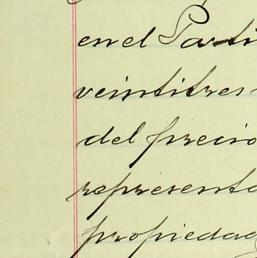 en el Parti
veintitres
del precio
representa
propiedad